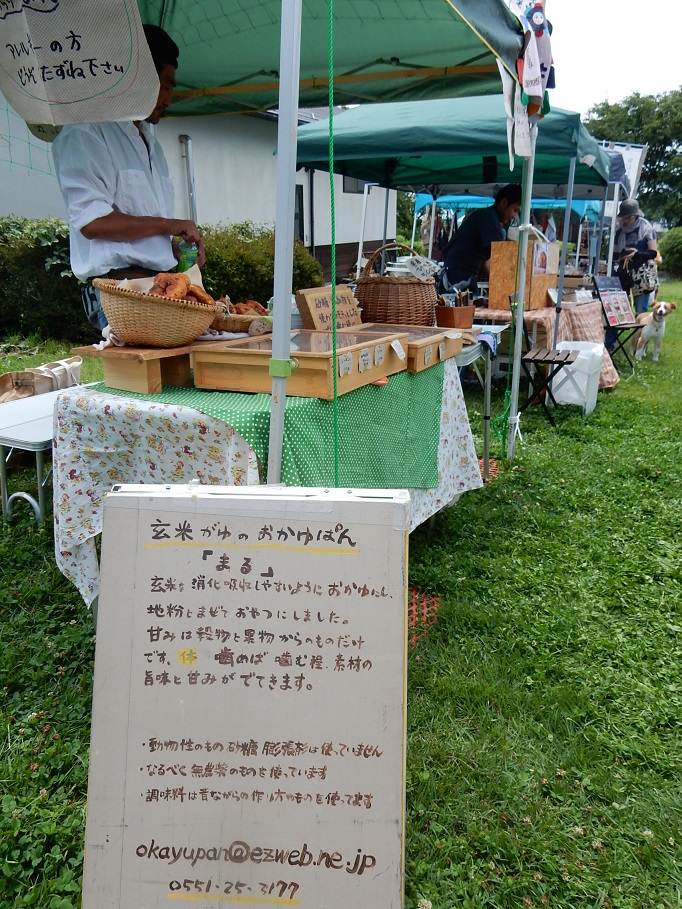 アレルギーの方
どうぞたずね下さい
玄米がゆのおかゆぱん
「まる」
玄米を消化吸収しやすいようにおかゆにし、
地粉とまぜておやつにしました。
甘みは穀物と果物からのものだけ
です。 噛めば噛む程、素材の
旨味と甘みがでてきます。
・動物性のもの 砂糖 膨張剤は使っていません
・なるべく無農薬のものを使っています
・調味料は昔ながらの作り方のものを使ってます
okayupan@ezweb.ne.jp
0551-25-3177